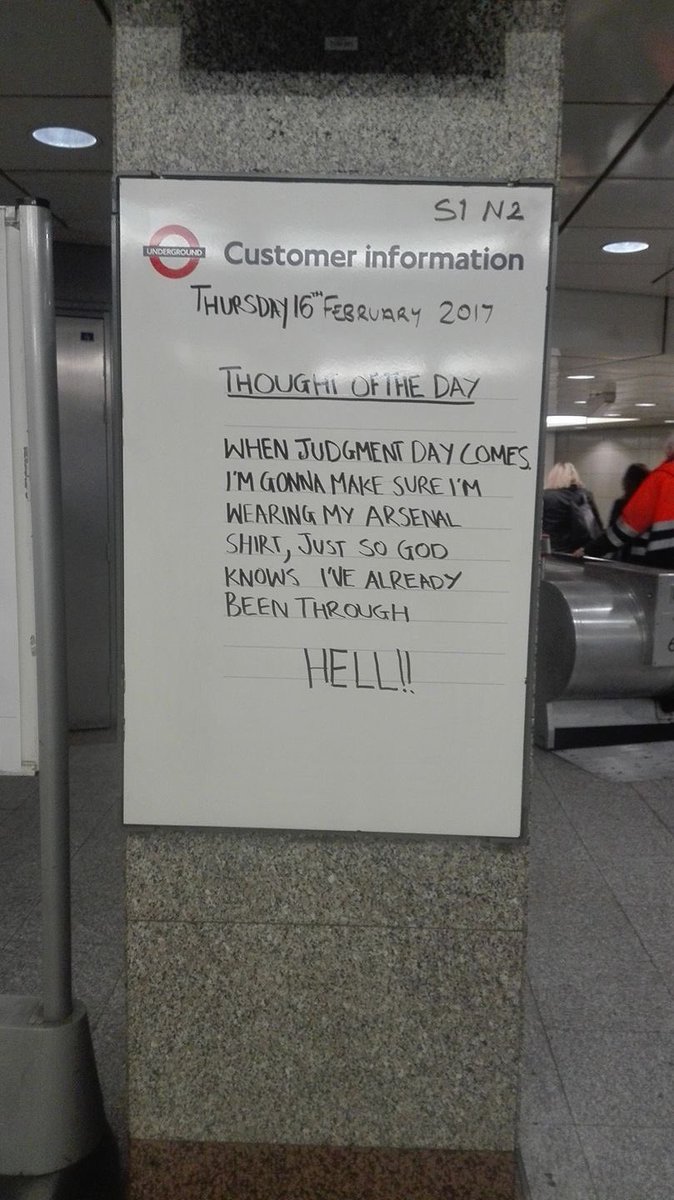 S1 N2
UNDERGROUND
Customer information
THURSDAY 16TH FEBRUARY 2017
THOUGHT OF THE DAY
WHEN JUDGMENT DAY COMES.
I'M GONNA MAKE SURE I'M
WEARING MY ARSENAL
SHIRT, JUST SO GOD
KNOWS I'VE ALREADY
BEEN THROUGH
HELL!!